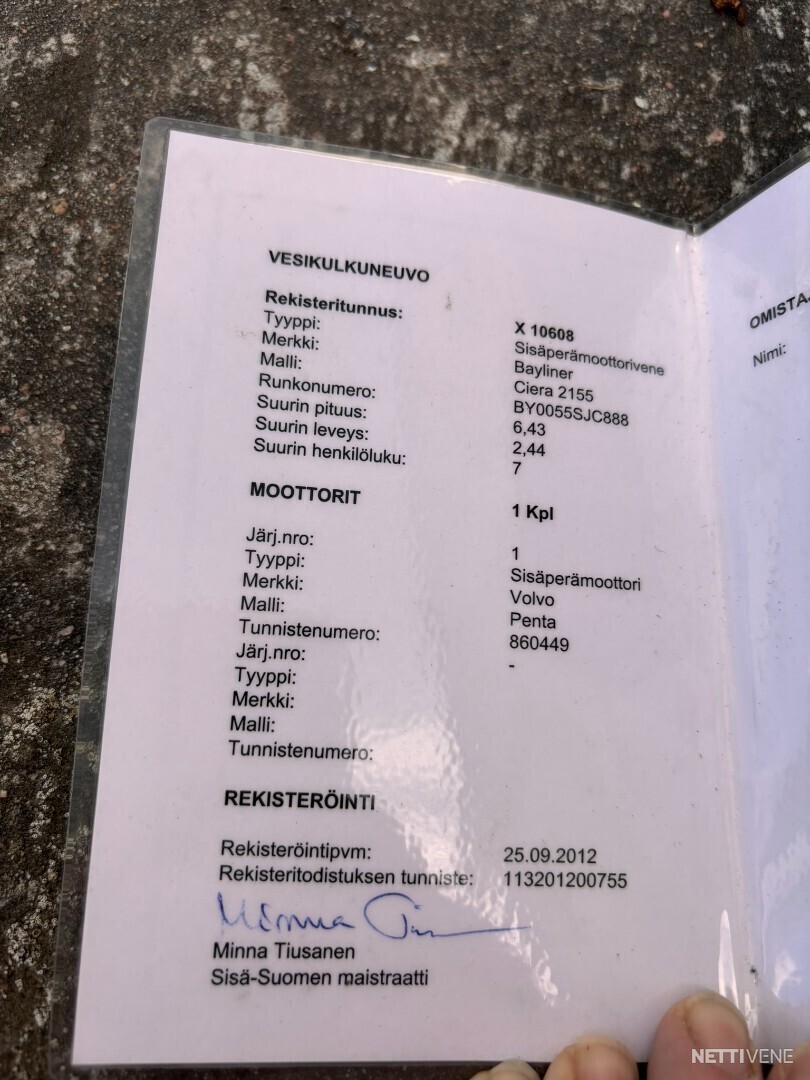 VESIKULKUNEUVO
Rekisteritunnus: X 10608
Tyyppi: Sisäperämoottorivene
Merkki: Bayliner
Malli: Ciera 2155
Runkonumero: BY0055SJC888
Suurin pituus: 6,43
Suurin leveys: 2,44
Suurin henkilöluku: 7
MOOTTORIT 1 Kpl
Järj.nro: 1
Tyyppi: Sisäperämoottori
Merkki: Volvo
Malli: Penta
Tunnistenumero: 860449
Järj.nro: -
Tyyppi:
Merkki:
Malli:
Tunnistenumero:
REKISTERÖINTI
Rekisteröintipvm: 25.09.2012
Rekisteritodistuksen tunniste: 113201200755
Minna
Minna Tiusanen
Sisä-Suomen maistraatti
Nimi:
NETTIVENE